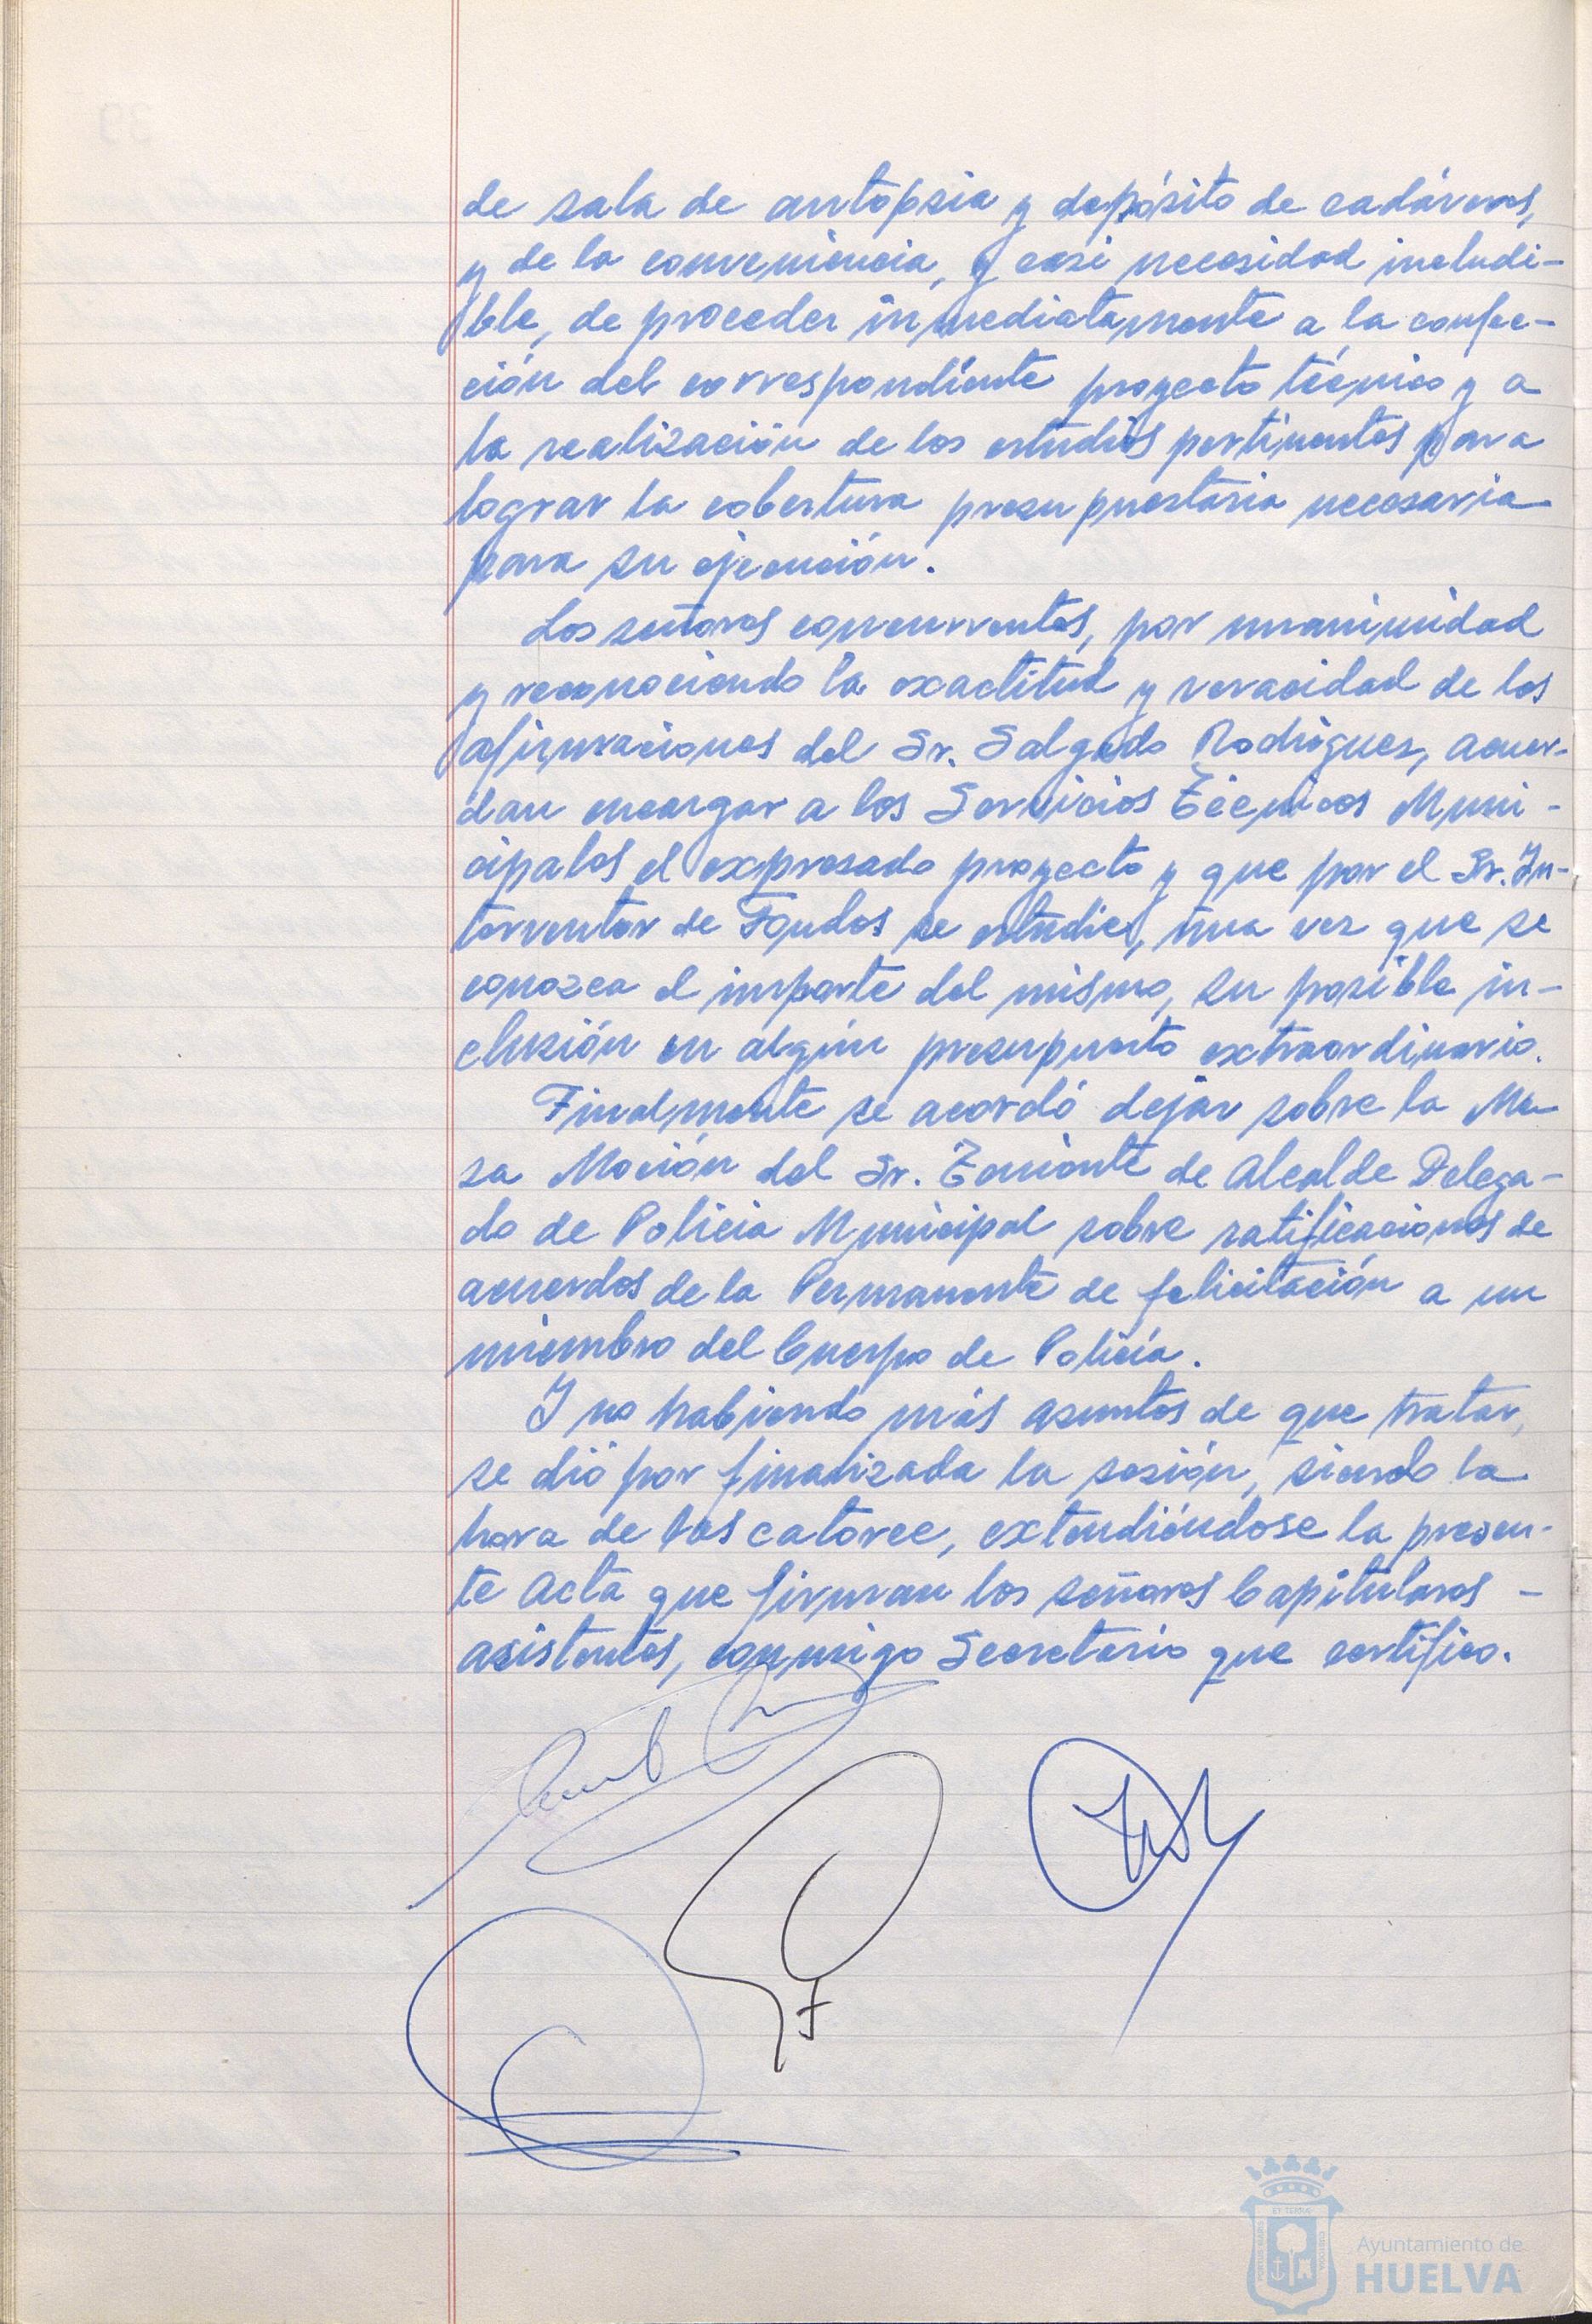 de sala de autopsia y depósito de cadáveres,
y de la conveniencia, y casi necesidad ineludi-
ble, de proceder inmediatamente a la confec-
ción del correspondiente proyecto técnico y a
la realización de los estudios pertinentes para
lograr la cobertura presupuestaria necesaria
para su ejecución.
Los señores concurrentes, por unanimidad
y reconociendo la exactitud y veracidad de las
afirmaciones del Sr. Salgado Rodríguez, acuer-
dan encargar a los Servicios Técnicos Muni-
cipales el expresado proyecto y que por el Sr. In-
terventor de Fondos se estudie, una vez que se
conozca el importe del mismo, su posible in-
clusión en algún presupuesto extraordinario.
Finalmente se acordó dejar sobre la Me-
sa Moción del Sr. Teniente de Alcalde Delega-
do de Policia Municipal sobre ratificaciones de
acuerdos de la Permanente de felicitación a un
miembro del Cuerpo de Policía.
Y no habiendo más asuntos de que tratar,
se dió por finalizada la sesión, siendo la
hora de las catorce, extendiéndose la presen-
te Acta que firman los señores Capitulares -
asistentes, conmigo Secretario que certifico.
Ayuntamiento de
HUELVA